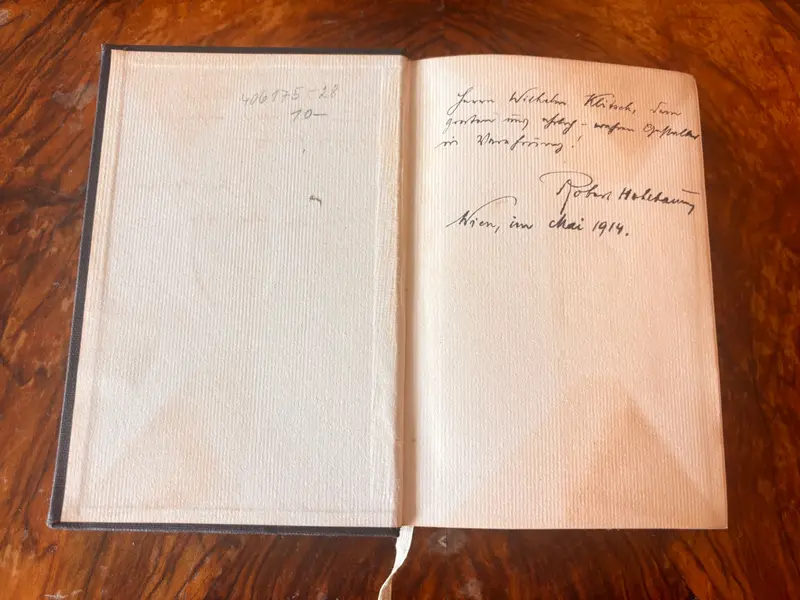 406175-28
10-
Herrn Wilhelm Klitsch, dem
großen und ehrlich-wahren Gestalter
in Verehrung!
Robert Hohlbaum
Wien, im Mai 1914.